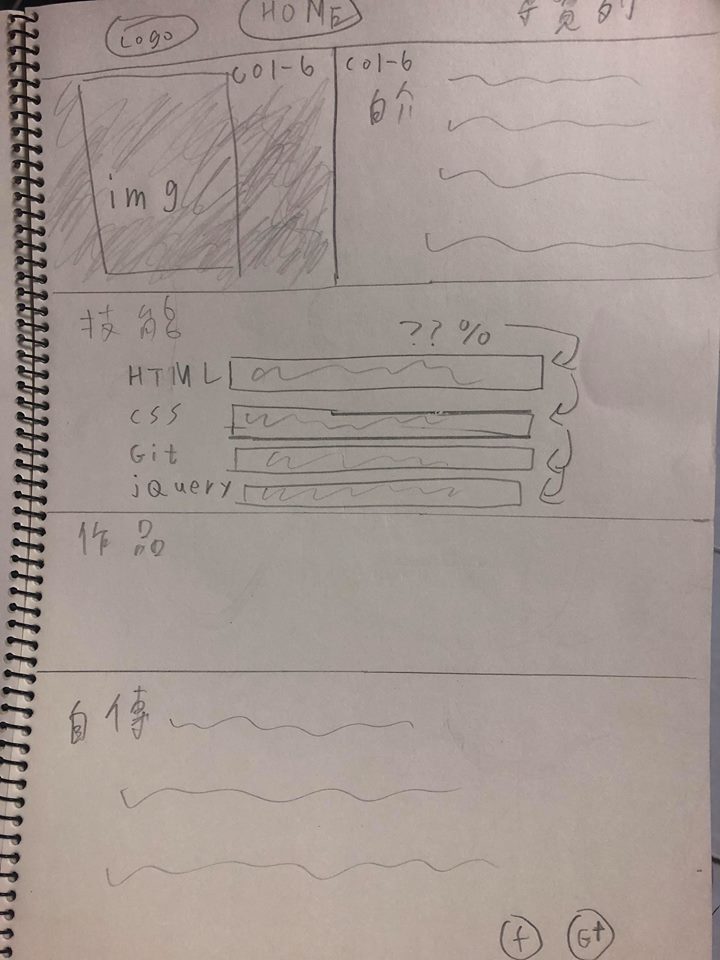 Logo
HOME
導覽列
col-6
col-6
自介
img
技能
??%
HTML
CSS
Git
jQuery
作品
自傳
f
G+